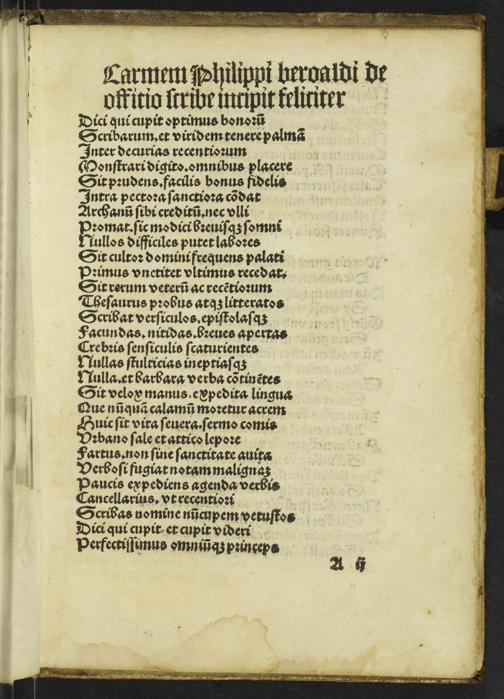 Carmem Philippi beroaldi de
offitio scribe incipit feliciter
Dici qui cupit optimus bonorū
Scribarum.et viridem tenere palmā
Inter decurias recentiorum
Monstrari digito.omnibus placere
Sit prudens.facilis bonus fidelis
Intra pectora sanctiora cōdat
Archanū sibi creditū.nec vlli
Promat.sic modici breuisqꝫ somni
Nullos difficiles putet labores
Sit cultor domini frequens palati
Primus vnctitet vltimus recedat.
Sit rerum veterū ac recētiorum
Thesaurus probus atqꝫ litteratos
Scribat versiculos.epistolasqꝫ
Facundas.nitidas.breues apertas
Crebris sensiculis scaturientes
Nullas stulticias ineptiasqꝫ
Nulla.et barbara verba cōtinētes
Sit velox manus.expedita lingua
Que nūquā calamū moretur acrem
Huic sit vita seuera.sermo comis
Vrbano sale et attico lepore
Fartus.non sine sanctitate auita
Verbosi fugiat notam malignaꝫ
Paucis expediens agenda verbis
Cancellarius.vt recentiori
Scribas nomine nūcupem vetustos
Dici qui cupit.et cupit videri
Perfectissimus omniūqꝫ princeps
A ij